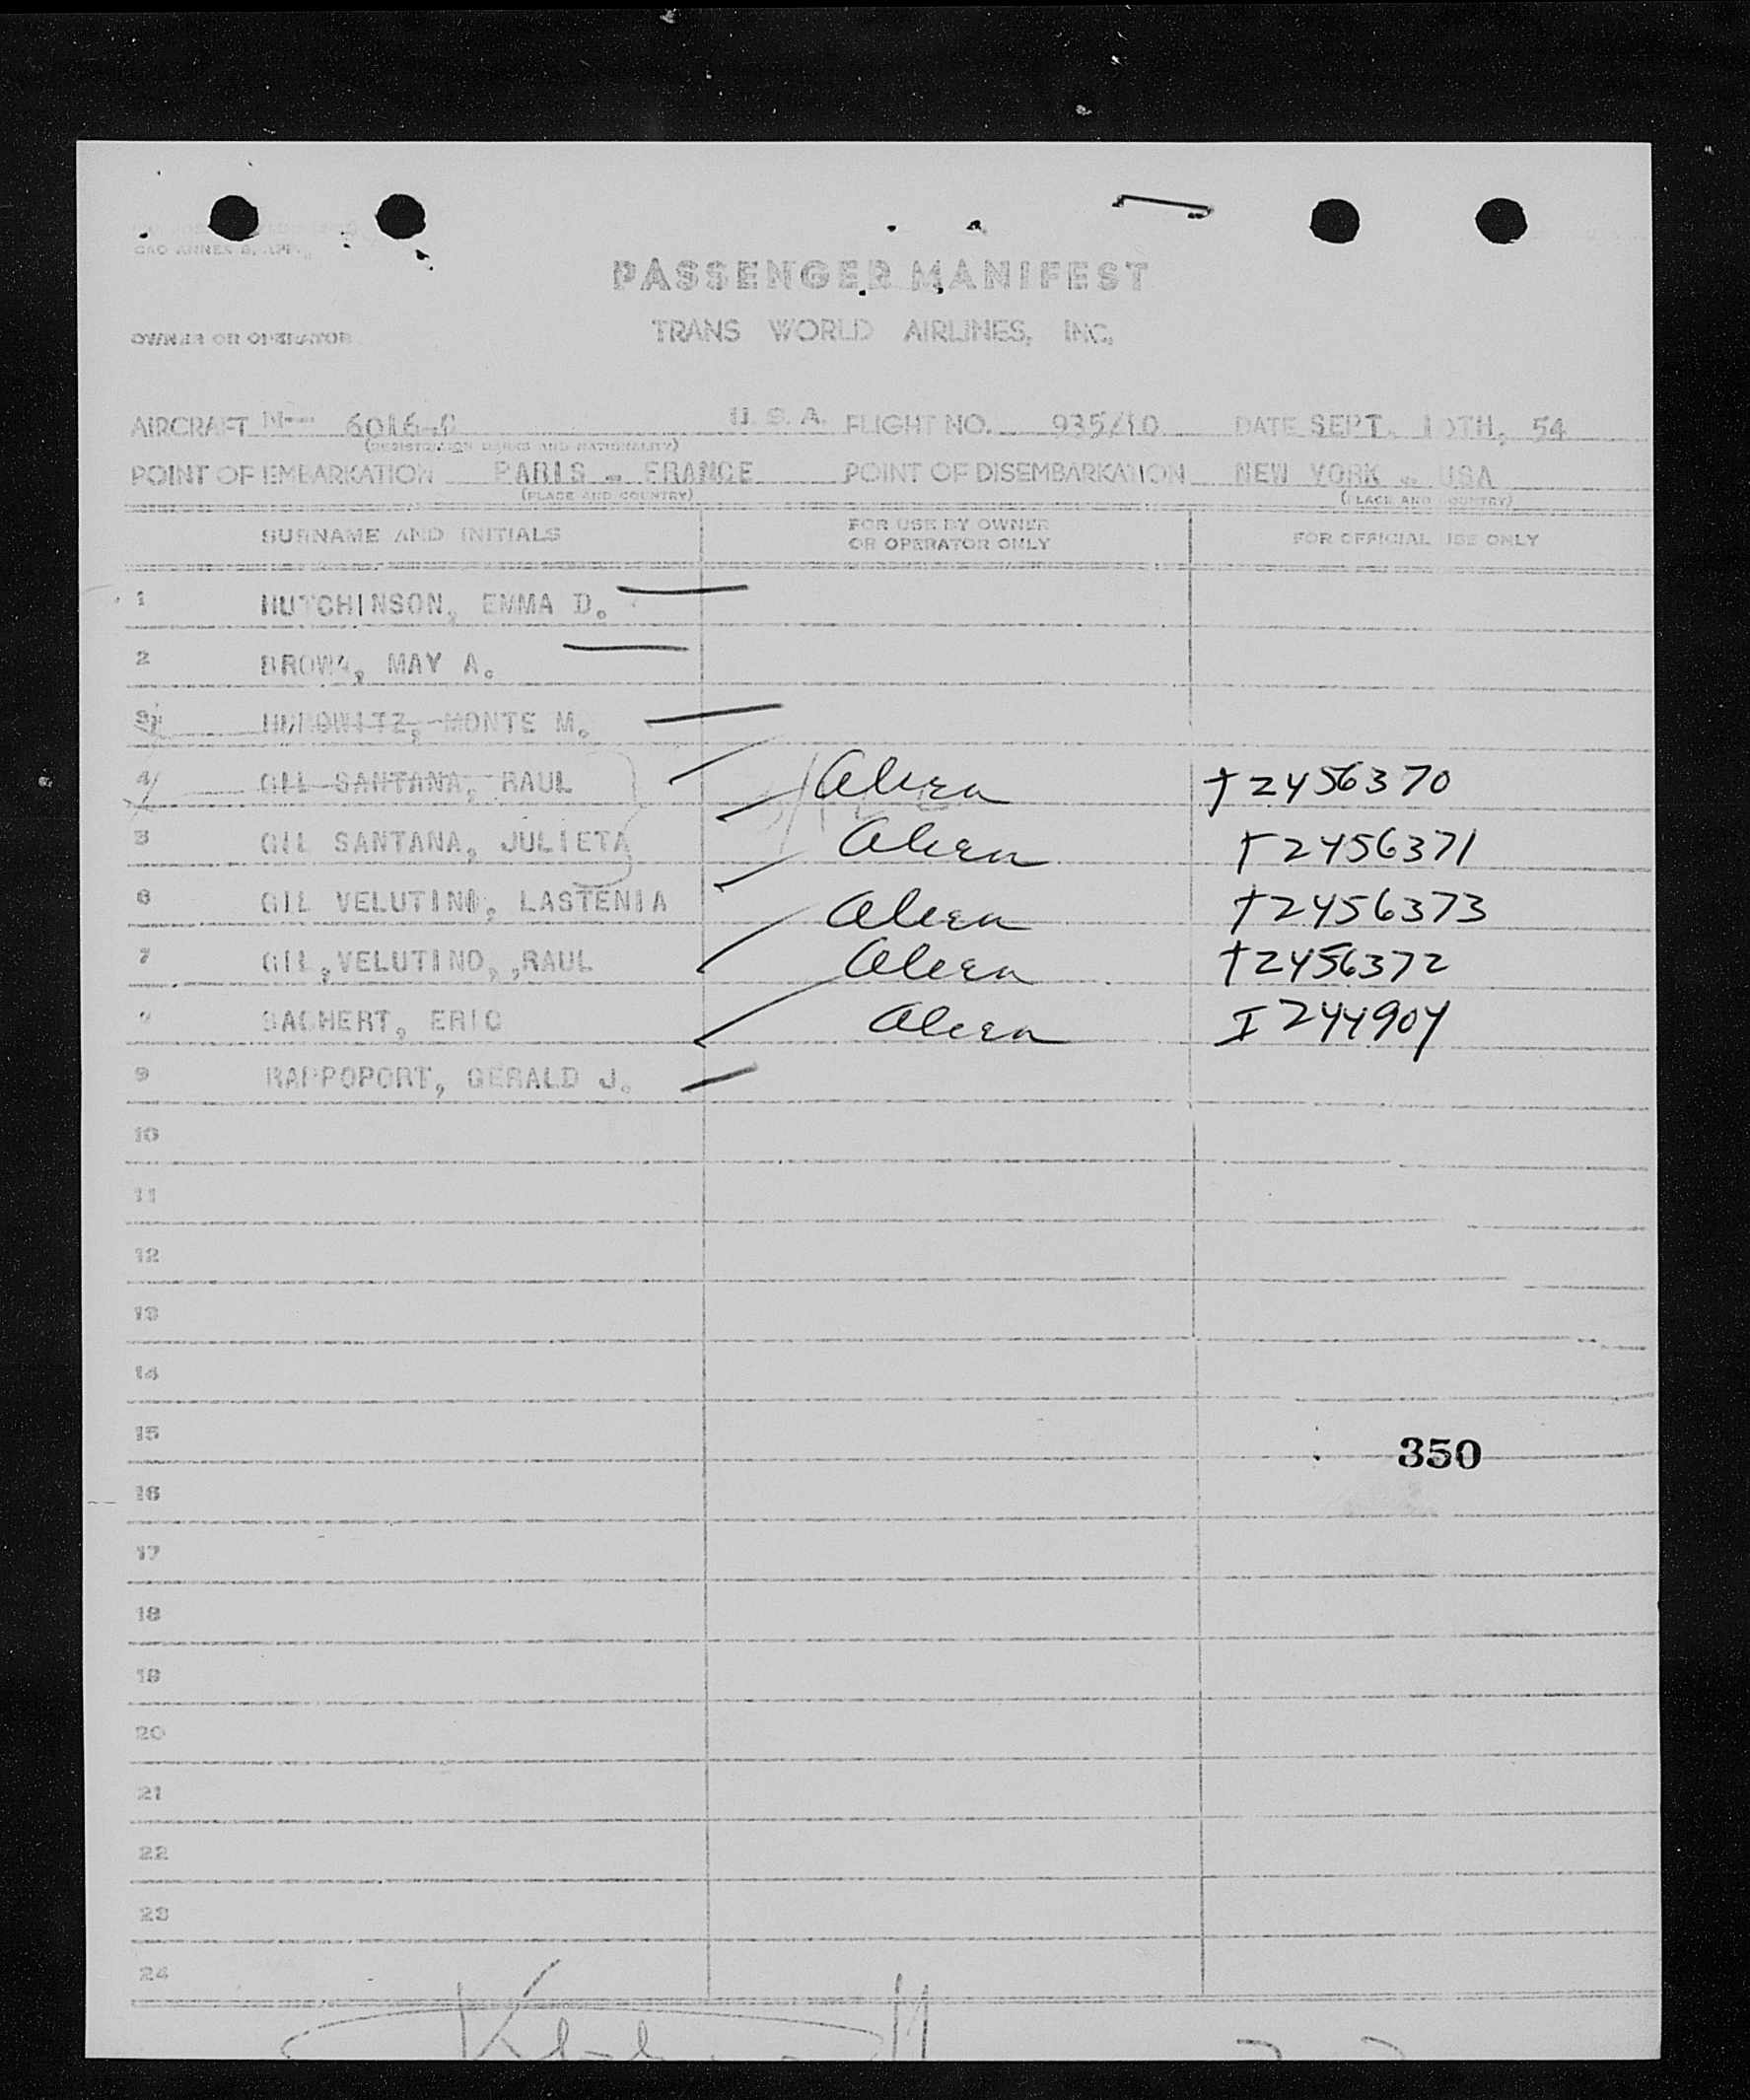 CAO ANNEX 9, APP.
PASSENGER MANIFEST
OWNER OR OPERATOR TRANS WORLD AIRLINES, INC.
AIRCRAFT N-- 6016-C U. S. A. FLIGHT NO. 935/10 DATE SEPT. 10TH, 54
(REGISTRATION MARKS AND NATIONALITY)
POINT OF EMBARKATION PARIS - FRANCE POINT OF DISEMBARKATION NEW YORK - USA
(PLACE AND COUNTRY) (PLACE AND COUNTRY)
SURNAME AND INITIALS FOR USE BY OWNER OR OPERATOR ONLY FOR OFFICIAL USE ONLY
1 HUTCHINSON, EMMA D.
2 BROWN, MAY A.
3 HUROWITZ, MONTE M.
4 GIL SANTANA, RAUL alien T2456370
5 GIL SANTANA, JULIETA alien T2456371
6 GIL VELUTINO, LASTENIA alien T2456373
7 GIL,VELUTINO,,RAUL alien T2456372
SACHERT, ERIC alien I 244904
9 RAPPOPORT, GERALD J.
10
11
12
13
14
15
350
16
17
18
19
20
21
22
23
24